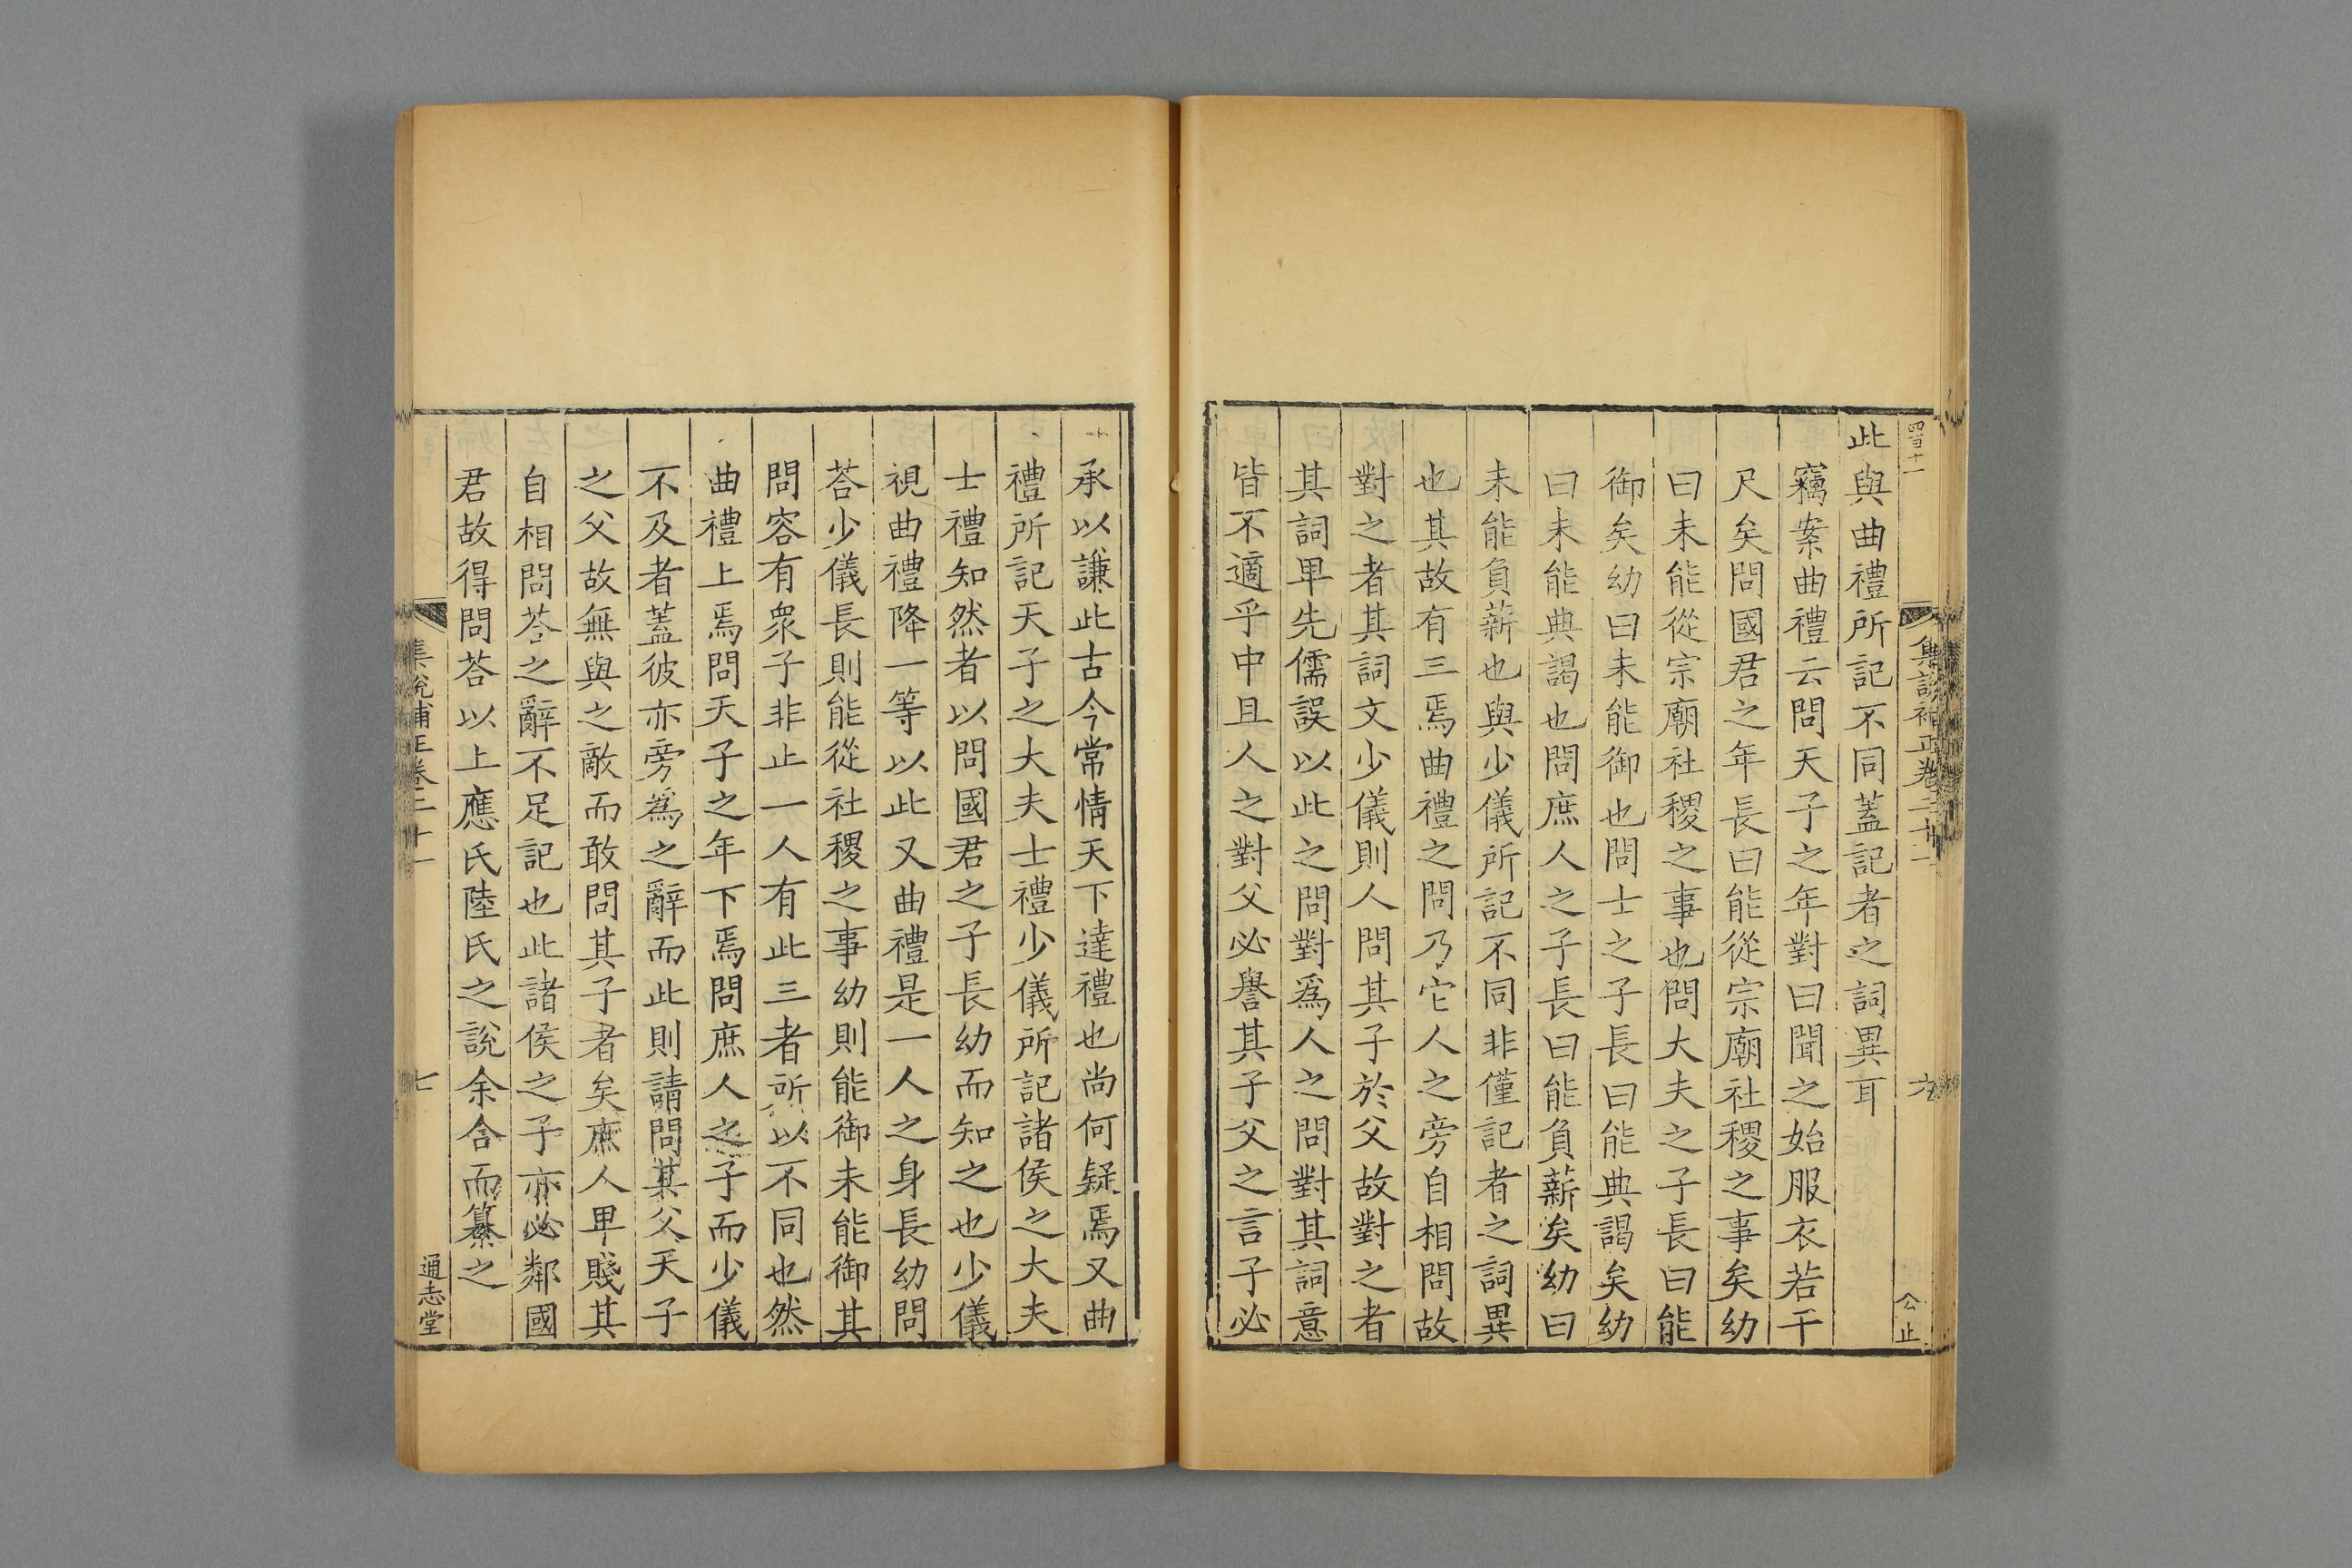 四百十一
集說補正卷二十一
六
公止
此與曲禮所記不同蓋記者之詞異耳
竊案曲禮云問天子之年對曰聞之始服衣若干
尺矣問國君之年長曰能從宗廟社稷之事矣幼
曰未能從宗廟社稷之事也問大夫之子長曰能
御矣幼曰未能御也問士之子長曰能典謁矣幼
曰未能典謁也問庶人之子長曰能負薪矣幼曰
未能負薪也與少儀所記不同非僅記者之詞異
也其故有三焉曲禮之問乃它人之旁自相問故
對之者其詞文少儀則人問其子於父故對之者
其詞卑先儒誤以此之問對為人之問對其詞意
皆不適乎中且人之對父必譽其子父之言子必
承以謙此古今常情天下達禮也尚何疑焉又曲
禮所記天子之大夫士禮少儀所記諸侯之大夫
士禮知然者以問國君之子長幼而知之也少儀
視曲禮降一等以此又曲禮是一人之身長幼問
荅少儀長則能從社稷之事幼則能御未能御其
問容有衆子非止一人有此三者所以不同也然
曲禮上焉問天子之年下焉問庶人之子而少儀
不及者蓋彼亦旁為之辭而此則請問其父天子
之父故無與之敵而敢問其子者矣庶人卑賤其
自相問荅之辭不足記也此諸侯之子亦必鄰國
君故得問荅以上應氏陸氏之說余合而纂之
集說補正卷二十一
七
通志堂